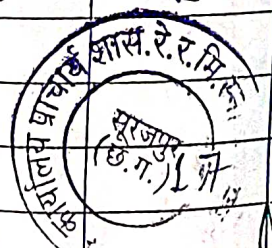 कार्यालय प्राचार्य शास. रे. र. मि.
सूरजपुर
(छ. ग.)